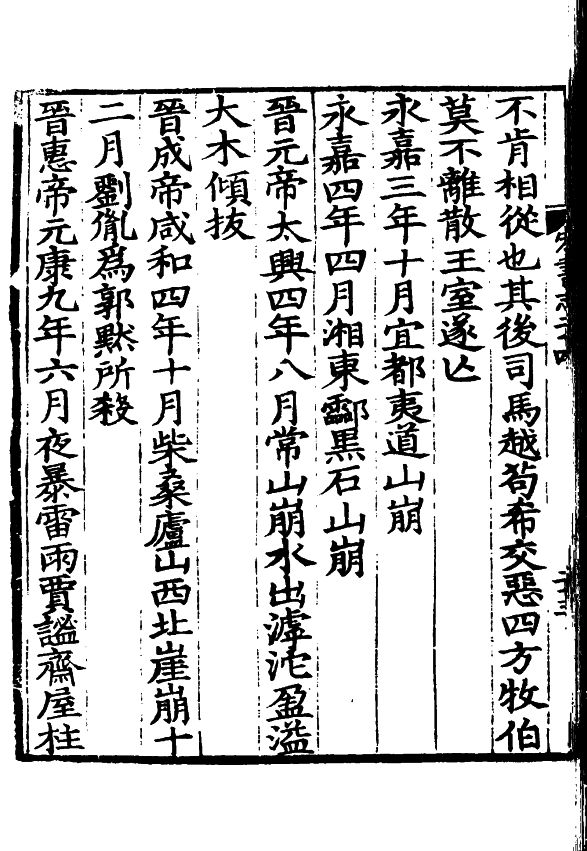 不肯相從也其後司馬越苟希交惡四方牧伯
莫不離散王室遂亡
永嘉三年十月宜都夷道山崩
永嘉四年四月湘東酃黒石山崩
晉元帝太興四年八月常山崩水出滹沱盈溢
大木傾抜
晉成帝咸和四年十月柴桑廬山西北崖崩十
二月劉胤爲郭默所殺
晉惠帝元康九年六月夜暴雷雨賈謐齋屋柱